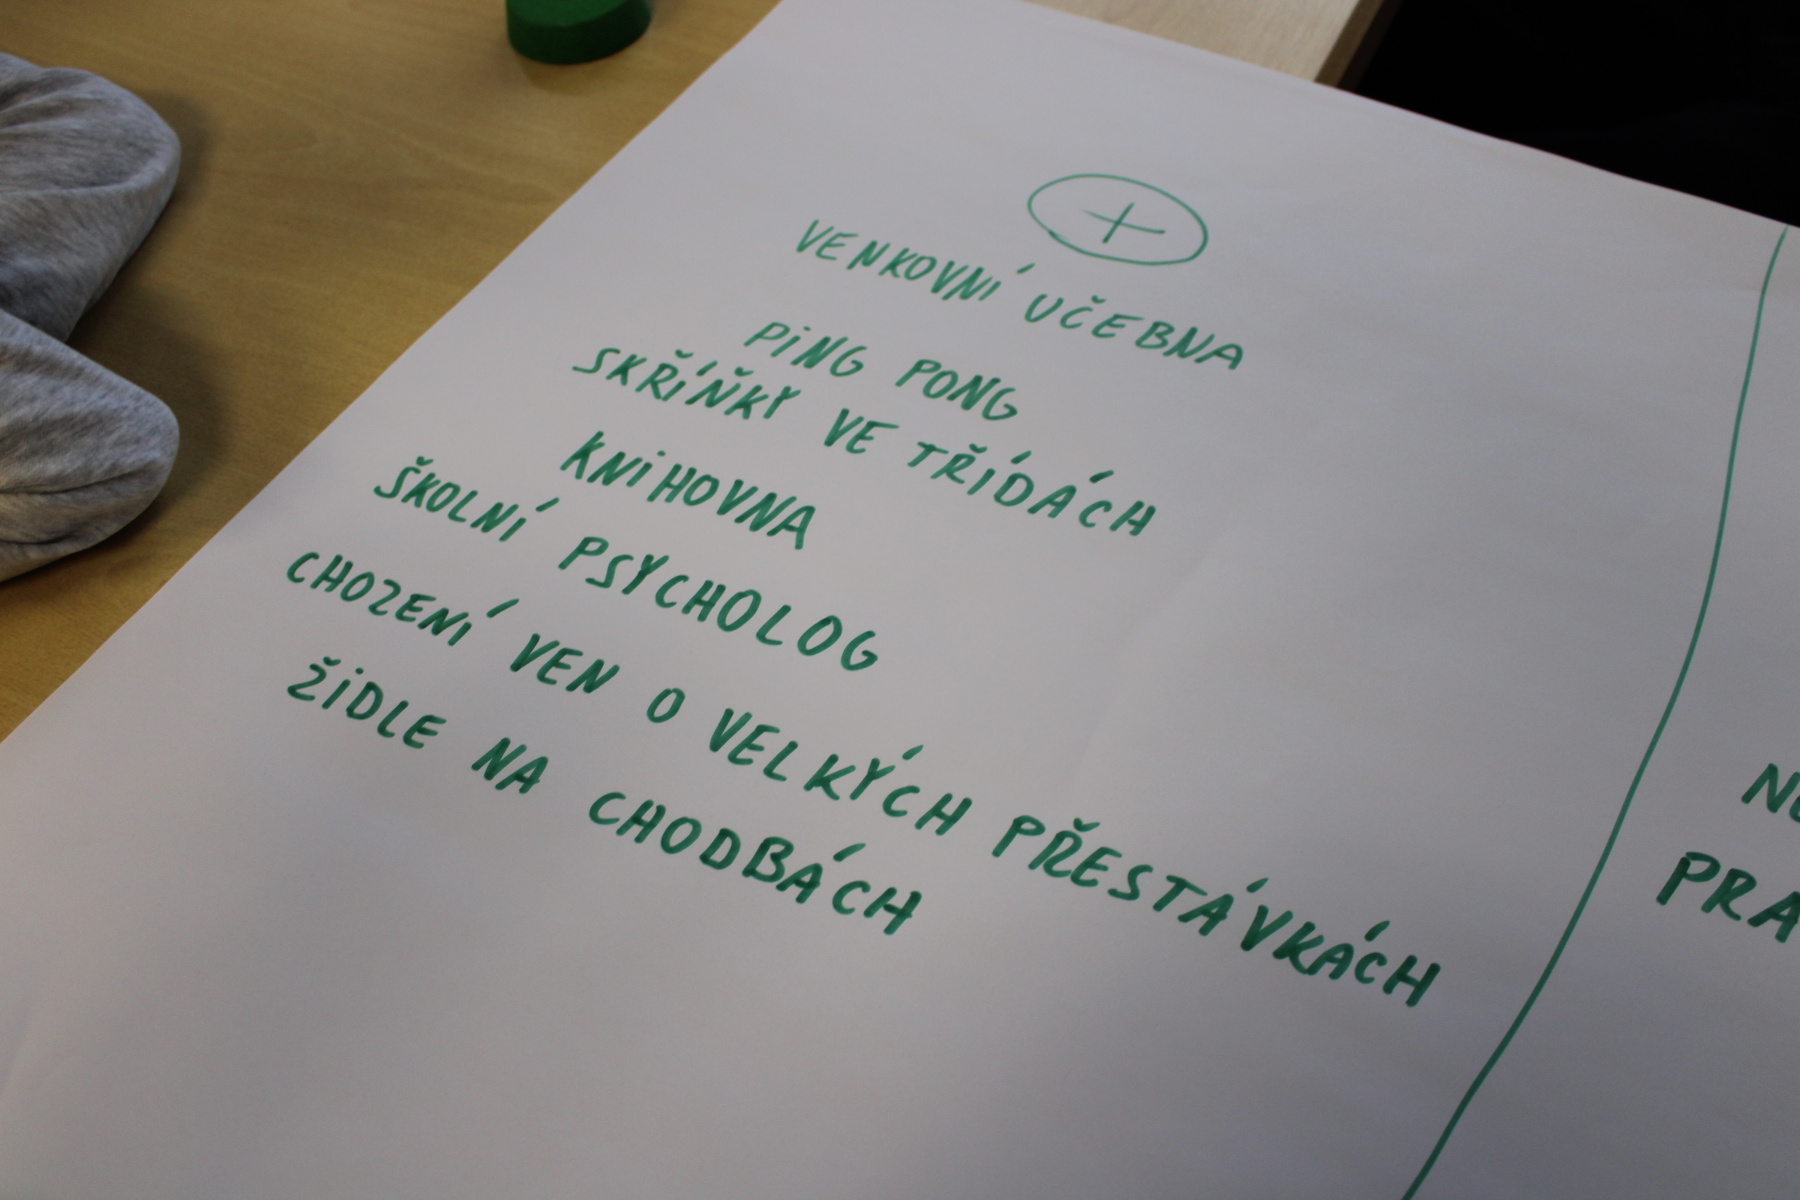 +
VENKOVNÍ UČEBNA
PiNG PONG
SKŘÍŇKY VE TŘÍDÁCH
KNiHOVNA
ŠKOLNÍ PSYCHOLOG
CHOZENÍ VEN O VELKÝCH PŘESTÁVKÁCH
ŽiDLE NA CHODBÁCH